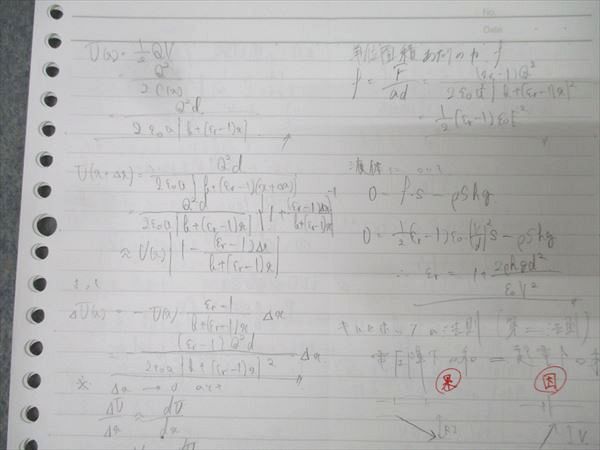 No.
Date
U(x) = 1/2 QV
= Q²/2C(x)
= Q²d / 2ε₀a{b+(εr-1)x}
U(x+Δx) = Q²d / 2ε₀a{b+(εr-1)(x+Δx)}
= Q²d / 2ε₀a{b+(εr-1)x} {1+ (εr-1)Δx / b+(εr-1)x}⁻¹
≈ U(x){1- (εr-1)Δx / b+(εr-1)x}
ΔU(x) = -U(x) εr-1 / b+(εr-1)x Δx
= (εr-1)Q²d / 2ε₀a{b+(εr-1)x}² Δx
※ Δx → 0
ΔU/Δx ≈ dU/dx
単位面積あたりの力 f
f = F/ad = (εr-1)Q² / 2ε₀a{b+(εr-1)x}²
= 1/2 (εr-1)ε₀E²
液体
0 = f·S - ρShg
0 = 1/2(εr-1)ε₀(V/d)²S - ρShg
∴ εr = 1 + 2ρhgd²/ε₀V²
の法則(第二法則)
電圧降下の和 = 起電力の和
果
因
RI
V